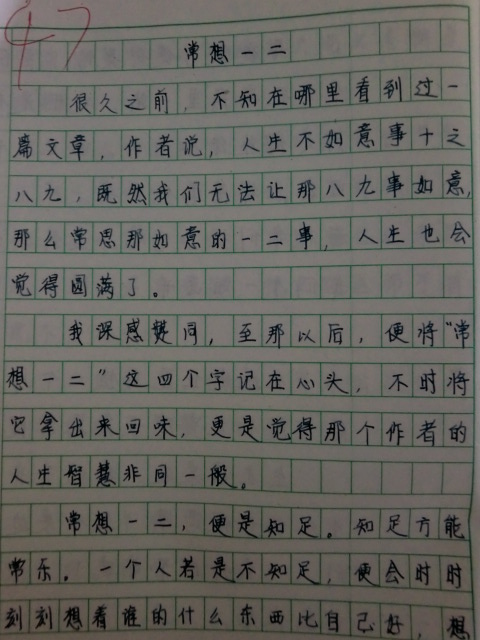 47
常想一二
很久之前，不知在哪里看到过一
篇文章，作者说，人生不如意事十之
八九，既然我们无法让那八九事如意，
那么常思那如意的一二事，人生也会
觉得圆满了。
我深感赞同，至那以后，便将“常
想一二”这四个字记在心头，不时将
它拿出来回味，更是觉得那个作者的
人生智慧非同一般。
常想一二，便是知足。知足方能
常乐。一个人若是不知足，便会时时
刻刻想着谁的什么东西比自己好，想